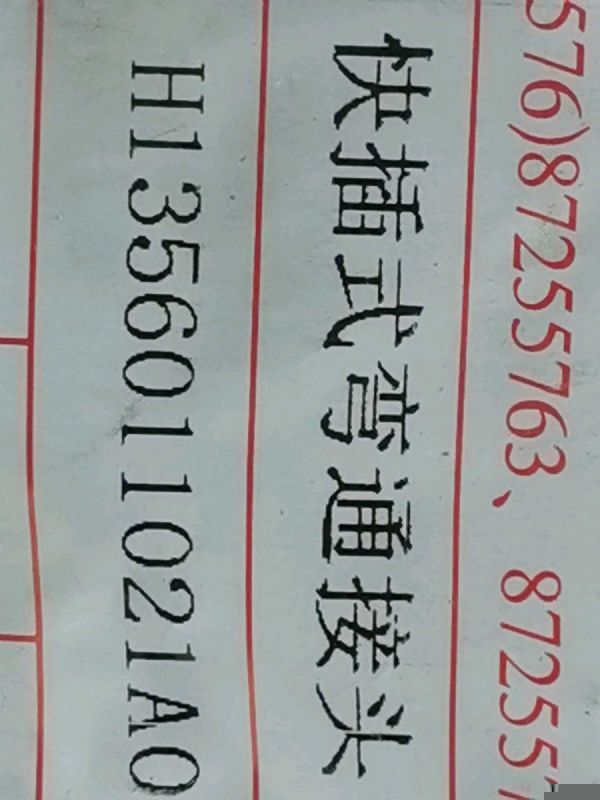 576)87255763、 87255
快插式弯通接头
H1356011021A0